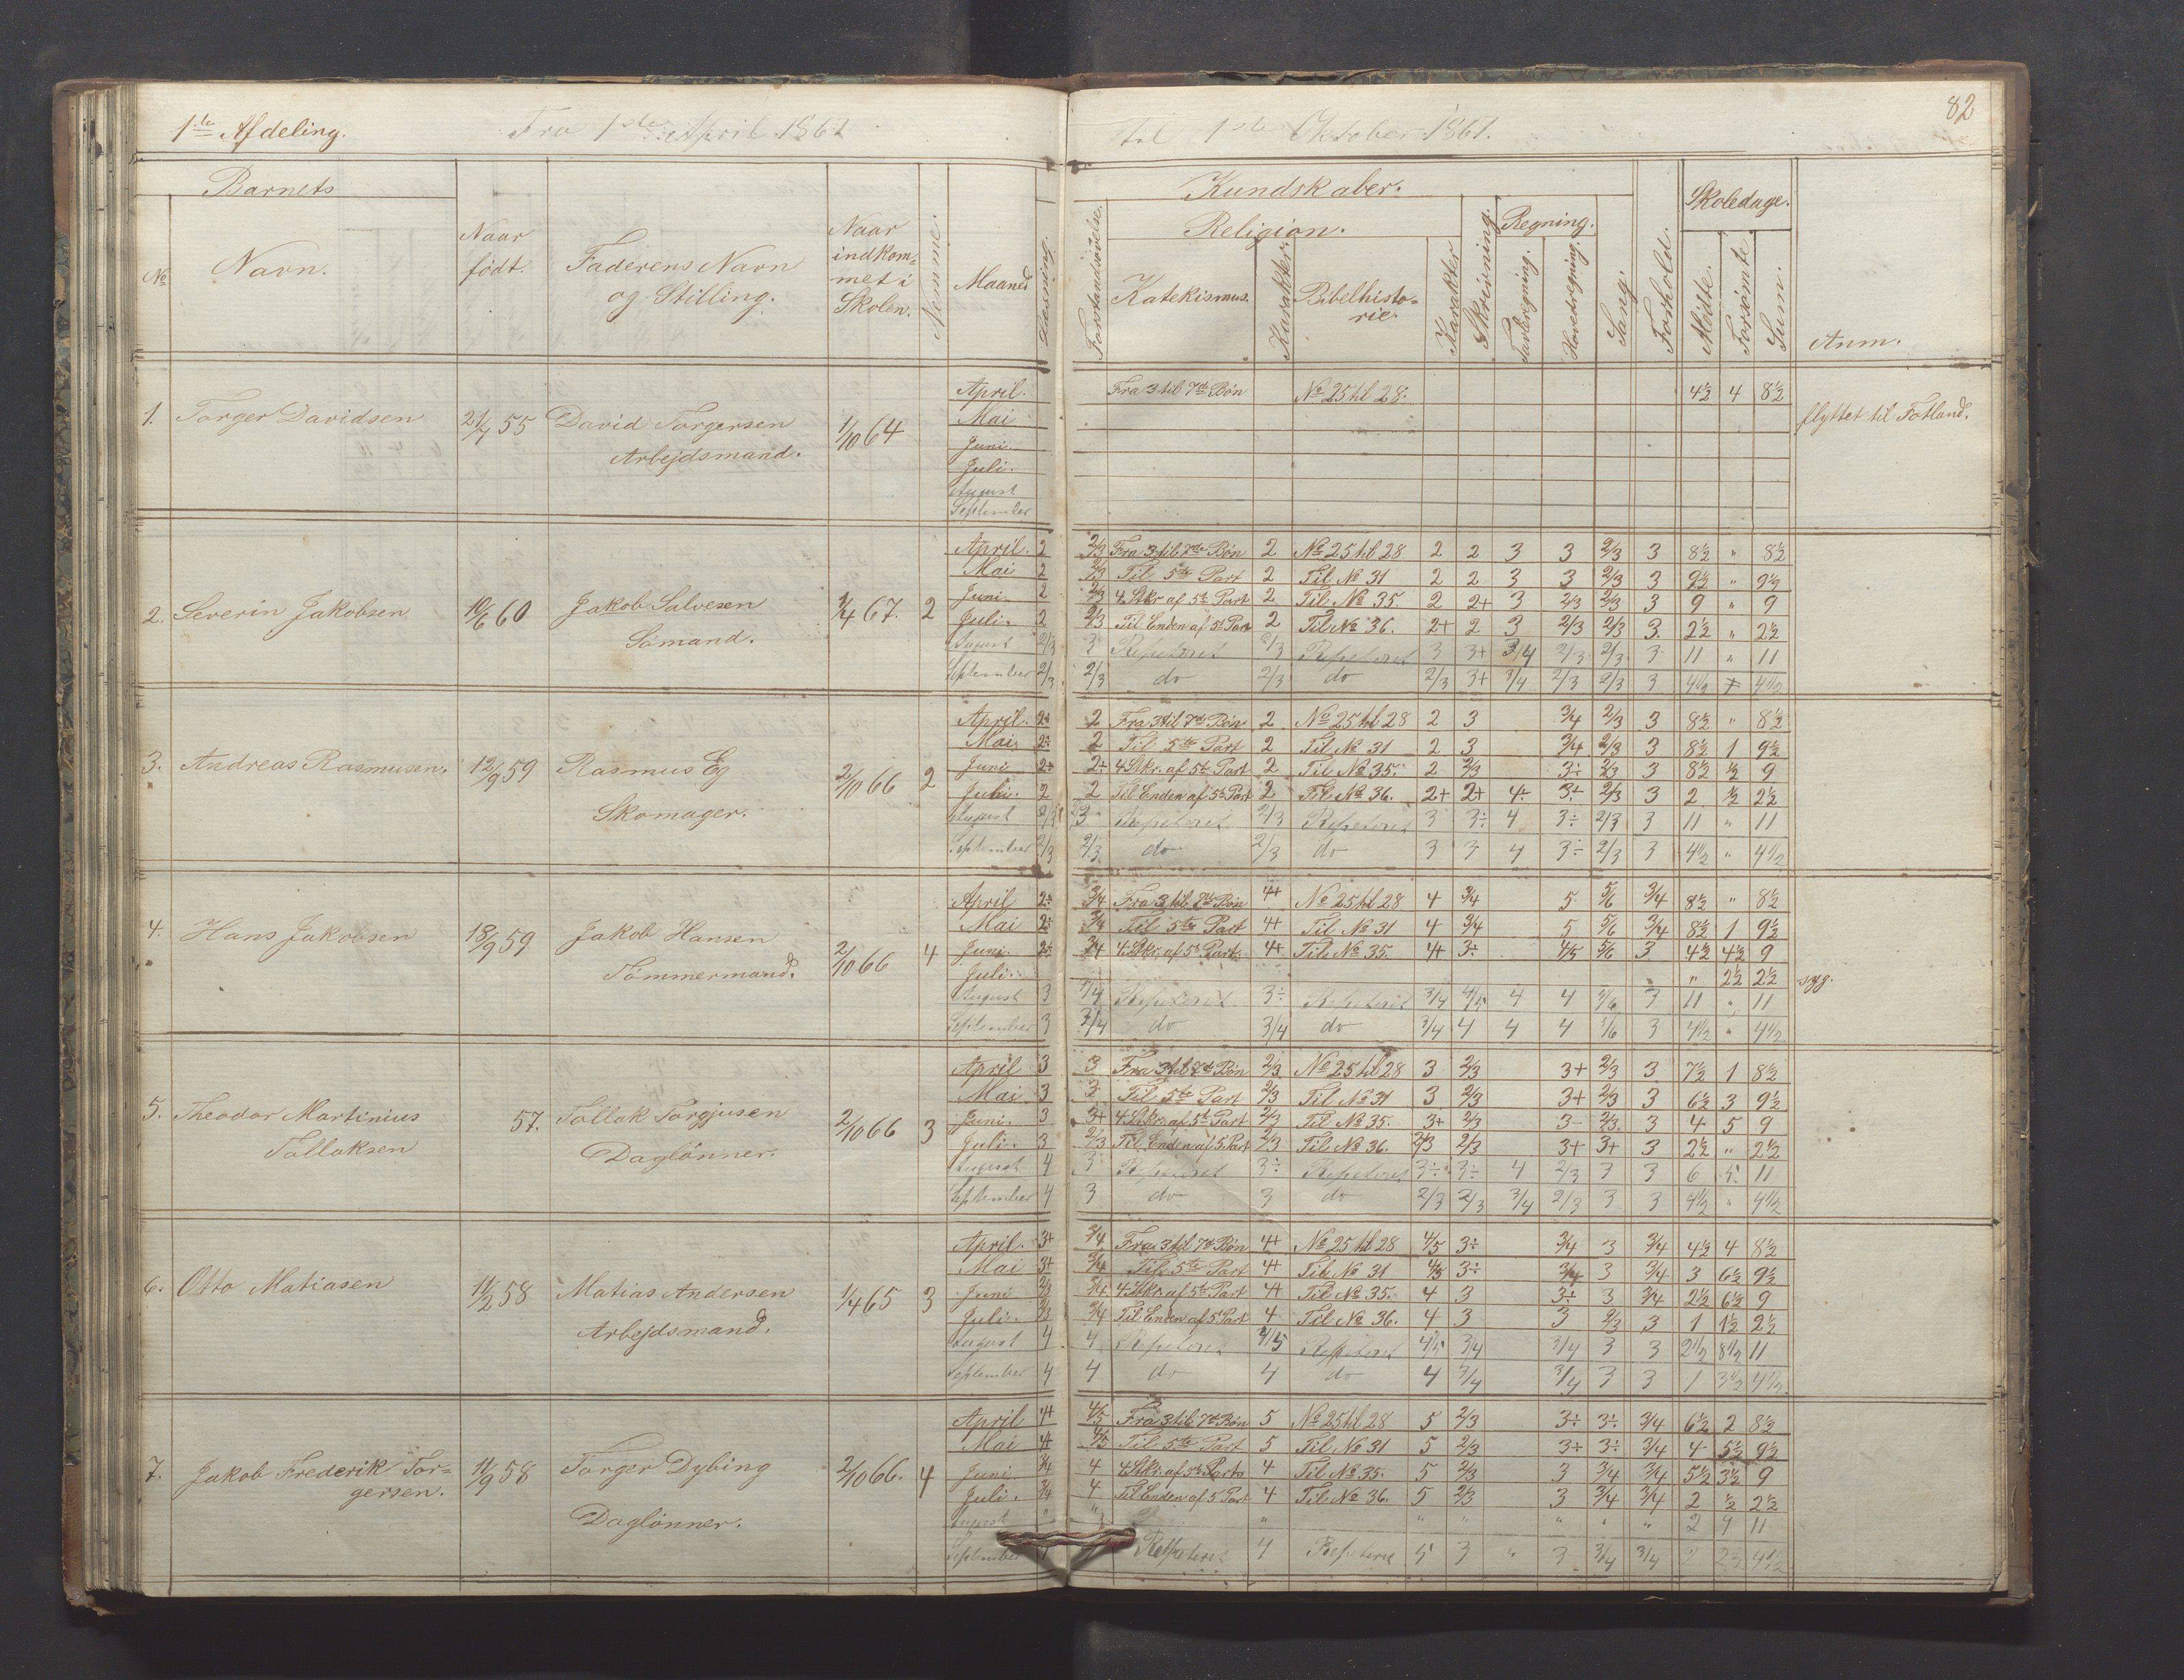 82
1ste Afdeling. Fra 1ste April 1867 til 1ste Oktober 1867.
Barnets
No Navn. Naar födt. Faderens Navn og Stilling. Naar indkommet i Skolen. Nemme. Maaned Læsning.
Kundskaber.
Forstandsövelse. Religion. Skrivning. Regning. Sang. Forhold. Skoledage. Anm.
Katekismus. Karakter. Bibelhistorie. Karakter Tavleregning. Hovedregning. Mödte. Forsömte. Sum.
1. Torger Davidsen 21/7 55 David Torgersen Arbejdsmand. 1/10 64
April. Fra 3 til 7de Bön No 25 til 28. 4½ 4 8½
Mai flyttet til Fotland.
Juni.
Juli.
August
September
2. Severin Jakobsen 10/6 60 Jakob Salvesen Sömand. 1/4 67. 2
April. 2 2/3 Fra 3 til 7de Bön 2 No 25 til 28 2 2 3 3 2/3 3 8½ " 8½
Mai 2 2/3 Til 5te Part 2 Til No 31 2 2 3 3 2/3 3 9½ " 9½
Juni. 2 2/3 4 Stkr af 5te Part 2 Til No 35. 2 2+ 3 2/3 2/3 3 9 " 9
Juli. 2 2/3 Til Enden af 5te Part 2 Til No 36. 2+ 2 3 2/3 2/3 3. 2½ " 2½
August 2/3 3 Repeteret 2/3 Repeteret 3 3+ 3/4 2/3 2/3 3 11 " 11
September 2/3 2/3 do 2/3 do 2/3 3+ 3/4 2/3 2/3 3 4½ 4½
3. Andreas Rasmusen. 12/9 59 Rasmus Eg Skomager. 2/10 66 2
April. 2÷ 2 Fra 3 til 7de Bön 2 No 25 til 28 2 3 3/4 2/3 3 8½ " 8½
Mai 2÷ 2 Til 5te Part 2 Til No 31 2 3 3/4 2/3 3 8½ 1 9½
Juni 2+ 2÷ 4 Stkr. af 5te Part 2 Til No 35. 2 2/3 3÷ 2/3 3 8½ ½ 9
Juli. 2 2 Til Enden af 5te Part 2 Til No 36. 2+ 2+ 4÷ 3÷ 2/3 3 2 ½ 2½
August 2/3 2/3 Repeteret 2/3 Repeteret 3 3÷ 4 3÷ 2/3 3 11 " 11
September 2/3 2/3 do 2/3 do 3 3 4 3÷ 2/3 3 4½ " 4½
4. Hans Jakobsen 18/9 59 Jakob Hansen Tömmermand. 2/10 66 4
April 2÷ 3/4 Fra 3 til 7de Bön 4+ No 25 til 28 4 3/4 5 5/6 3/4 8½ " 8½
Mai 2÷ 3/4 Til 5te Part 4+ Til No 31 4 3/4 5 5/6 3/4 8½ 1 9½
Juni. 2÷ 3/4 4 Stkr. af 5te Part. 4+ Til No 35. 4+ 3÷ 4/5 5/6 3 4½ 4½ 9
Juli. " 2½ 2½ syg.
August 3 Repeteret 3÷ Repeteret 3/4 4/5 4 4 3 11 " 11
September 3 3/4 do 3/4 do 3/4 4 4 4 3 4½ " 4½
5. Theodor Martinius Tollaksen 57. Tollak Torgjusen Daglönner. 2/10 66 3
April 3 3 Fra 3 til 7de Bön 2/3 No 25 til 28 3 2/3 3+ 2/3 3 7½ 1 8½
Mai 3 3 Til 5te Part 2/3 Til No 31 3 2/3 3+ 2/3 3 6½ 3 9½
Juni. 3 3+ 4 Stkr. af 5te Part 2/3 Til No 35. 3+ 2/3 3- 2/3 3 4 5 9
Juli. 3 2/3 Til Enden af 5 Part 2/3 Til No 36. 2/3 2/3 3+ 3+ 3 2½ " 2½
August 4 3 Repeteret 3÷ Repeteret 3÷ 3÷ 4 2/3 3 3 6 5 11
September 4 3 do 3 do 2/3 2/3 3/4 2/3 3 3 4½ " 4½
6. Otto Matiasen 11/2 58 Matias Andersen Arbejdsmand. 1/4 65 3
April. 3+ 3/4 Fra 3 til 7de Bön 4+ No 25 til 28 4/5 3÷ 3/4 3 3/4 4½ 4 8½
Mai 3+ 3/4 Til 5te Part 4+ Til No 31 4/5 3÷ 3/4 3 3/4 3 6½ 9½
Juni 2/3 3/4 4 Stkr. af 5te Part 4+ Til No 35. 4 3 3÷ 3 3/4 2½ 6½ 9
Juli. 2/3 3/4 Til Enden af 5 Part 4 Til No 36. 4 3 3 2/3 3 1 1½ 2½
August 4 4 Repeteret 4/5 Repeteret 4/5 3/4 3/4 3 3 2½ 8½ 11
September 4 4 do 4 do 4 3/4 3/4 3 3 1 3½ 4½
7. Jakob Frederik Torgersen. 11/9 58 Torger Dybing Daglönner. 2/10 66. 4
April 4+ 4/5 Fra 3 til 7de Bön 5 No 25 til 28 5 2/3 3÷ 3÷ 3/4 6½ 2 8½
Mai 4+ 4/5 Til 5te Part 5 Til No 31 5 2/3 3+ 3÷ 3/4 4 5½ 9½
Juni 3/4 4 4 Stkr. af 5te Part 4 Til No 35. 5 2/3 3 3/4 3/4 5½ 3½ 9
Juli. 3/4 4 Til Enden af 5 Part 4 Til No 36. 5 2/3 3 3/4 3/4 2 ½ 2½
August " " " " " " " " 2 9 11
September Repeteret 4 Repeteret 5 3 " 3 3/4 3/4 2 2½ 4½